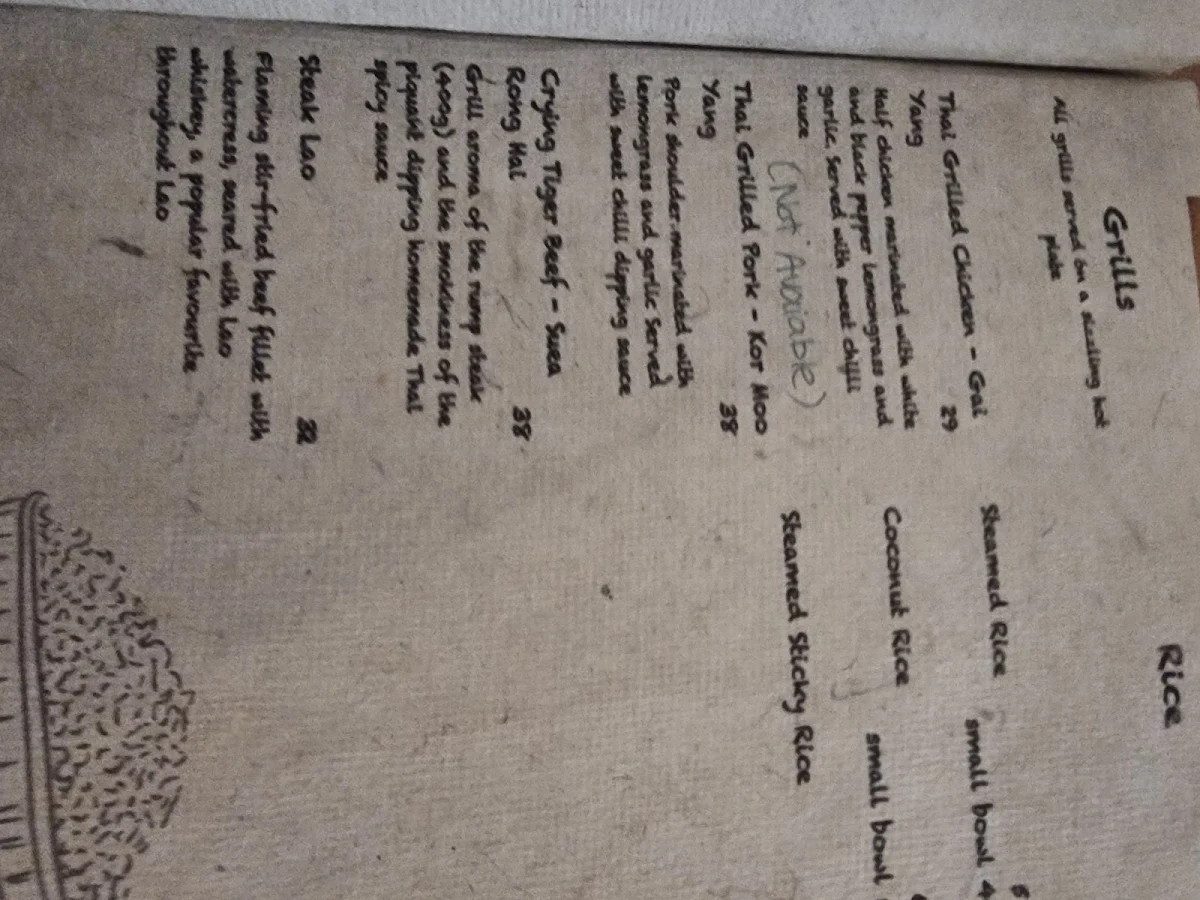 Grills
All grills served on a sizzling hot
plate
Thai Grilled Chicken - Gai
Yang 29
Half chicken marinated with white
and black pepper lemongrass and
garlic. Served with sweet chilli
sauce
(Not Avaiable)
Thai Grilled Pork - Kor Moo
Yang 38
Pork shoulder marinated with
lemongrass and garlic Served
with sweet chilli dipping sauce
Crying Tiger Beef - Suea
Rong Hai 38
Grill aroma of the rump steak
(400g) and the smokiness of the
piquant dipping homemade Thai
spicy sauce
Steak Lao 32
Flaming stir-fried beef fillet with
watercress, seared with Lao
whiskey, a popular favourite
throughout Lao
Rice
Steamed Rice small bowl 4
Coconut Rice small bowl
Steamed Sticky Rice